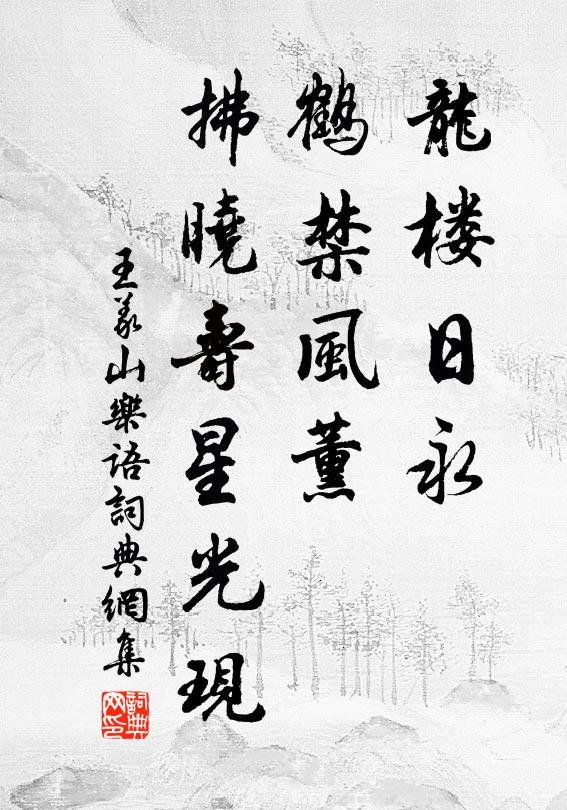 龍楼日永
鶴禁風薰
拂曉壽星光現
王義山樂语詞典網集
詞典网印